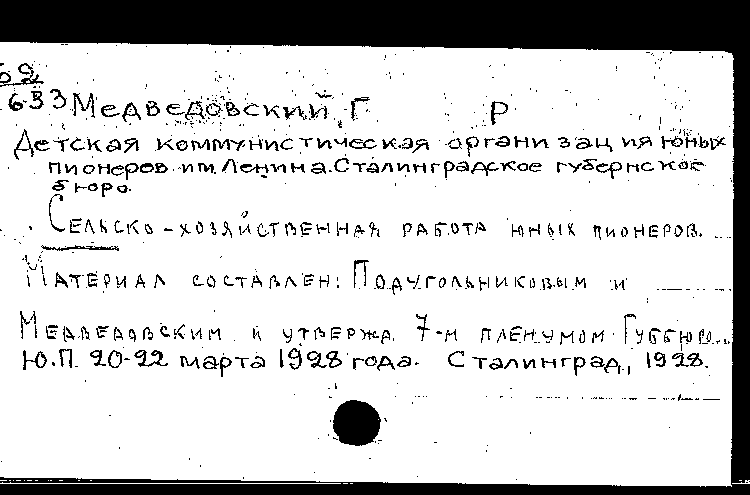 69
633 Медведовский, Г Р
Детская коммунистическая организация юных
пионеров им. Ленина. Сталинградское губернское
бюро.
Сельско-хозяйственная работа юных пионеров.
Материал составлен: Подугольниковым и
Медведовским и утвержд. 7-м пленумом Губбюро
Ю.П. 20-22 марта 1928 года. Сталинград, 1928.